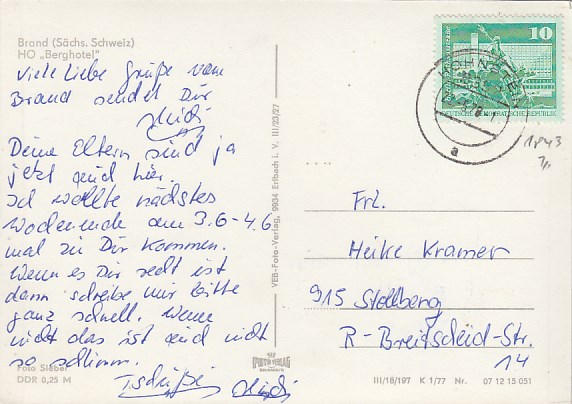 Brand (Sächs. Schweiz)
HO „Berghotel"
Viele Liebe Grüße vom
Brand sendet Dir
Heidi
Deine Eltern sind ja
jetzt auch hier.
Ich wollte nächstes
Wochenende am 3.6-4.6
mal zu Dir kommen.
Wenn es Dir recht ist
dann schreibe mir bitte
ganz schnell. Wenn
nicht das ist auch nicht
so schlimm.
Tschüßi Heidi
Foto Sieber
DDR 0,25 M
VEB-Foto-Verlag, 9934 Erlbach i. V. III/23/27
10
DEUTSCHE DEMOKRATISCHE REPUBLIK
HOHNSTEIN
a
1843
Frl.
Heike Kramer
915 Stollberg
R-Breitscheid-Str.
14
FOTO VERLAG
III/18/197 K 1/77 Nr. 07 12 15 051